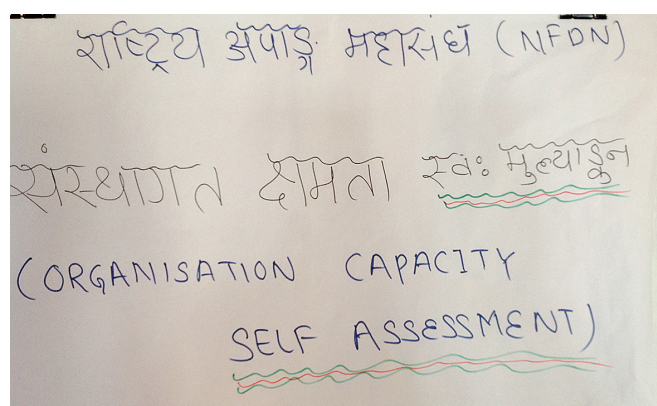 राष्ट्रिय अपाङ्ग महासंघ (NFDN)
संस्थागत क्षमता स्वः मुल्याङ्कन
(ORGANISATION CAPACITY
SELF ASSESSMENT)